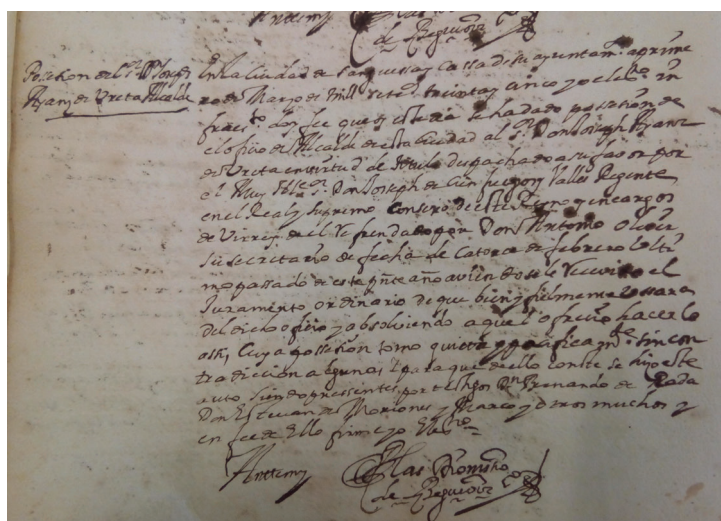 Anttemi
de Reguior
Possesion del Sr. Dn Joseph
Ayanz de Ureta Alcalde
En la Ciudad de Sanguessa y Cassa de su ayuntamto. a prime
ro de Marzo de Mill setects. treinta y cinco yo el no. in
fraesto. doy fee que oy este dia se ha dado possesion de
el ofiçio de Alcalde de esta Ciudad al Sr. Don Joseph Ayanz
de Ureta en virtud de titulo despachado a su fabor por
el Muy Ille. Sr. Don Joseph de Cien fuegos y Valles Regente
en el Real y Supremo Consejo de este Reyno y en cargos
de Virrey de el Refrendado por Don Antonio Oliver
su secretario de fecha de Catorce de febrero Ulti
mo passado de este pnte año aviendosele recivido el
Juramento ordinario de que bien y fielmente ussara
del dicho ofiçio y obsolviendo a aquel ofreçio hacerlo
assi, Cuya possesion tomo quieta y paçificamte. sin con
tradiçion alguna, y para que de ello conste se hizo este
auto siendo pressentes por testigos Dn. Fernando de Rada
Don Estevan de Moriones y Marco y otros muchos y
en fee de Ello firme yo El no.
Anttemi
de Reguior